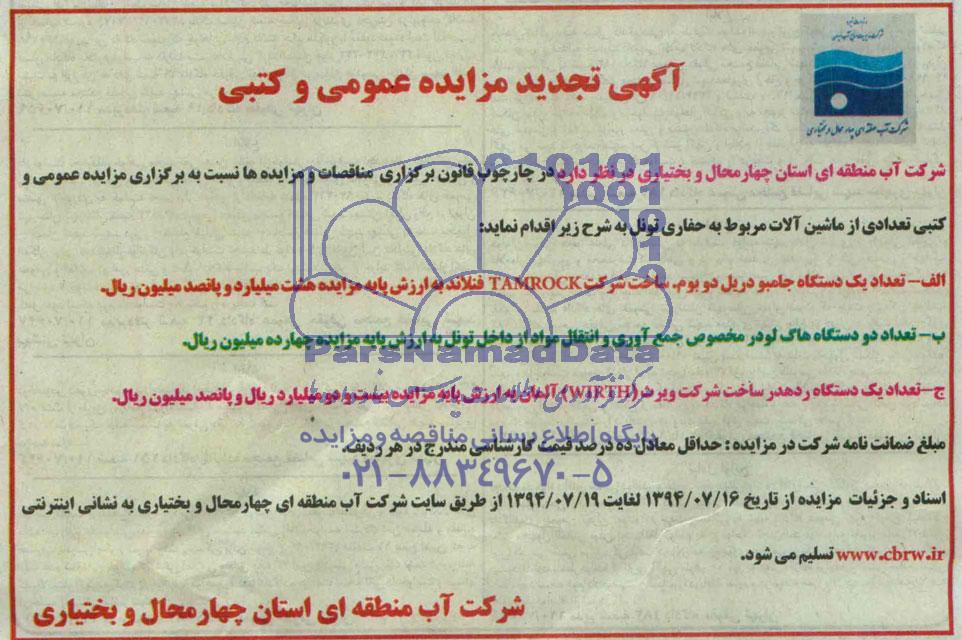 وزارت نیرو
شرکت آب منطقه ای چهارمحال و بختیاری
آگهی تجدید مزایده عمومی و کتبی
شرکت آب منطقه ای استان چهارمحال و بختیاری در نظر دارد در چارچوب قانون برگزاری مناقصات و مزایده ها نسبت به برگزاری مزایده عمومی و
کتبی تعدادی از ماشین آلات مربوط به حفاری تونل به شرح زیر اقدام نماید:
الف- تعداد یک دستگاه جامبو دریل دو بوم. ساخت شرکت TAMROCK فنلاند به ارزش پایه مزایده هشت میلیارد و پانصد میلیون ریال.
ب- تعداد دو دستگاه هاگ لودر مخصوص جمع آوری و انتقال مواد از داخل تونل به ارزش پایه مزایده چهارده میلیون ریال.
ParsNamadData
ج-تعداد یک دستگاه ردهدر ساخت شرکت ویرث (WIRTH) آلمان به ارزش پایه مزایده بیست و دو میلیارد ریال و پانصد میلیون ریال.
پایگاه اطلاع رسانی مناقصه و مزایده
مبلغ ضمانت نامه شرکت در مزایده : حداقل معادل ده درصد قیمت کارشناسی مندرج در هر ردیف.
۰۲۱-۸۸۳۴۹۶۷۰-۵
اسناد و جزئیات مزایده از تاریخ ۱۳۹۴/۰۷/۱۶ لغایت ۱۳۹۴/۰۷/۱۹ از طریق سایت شرکت آب منطقه ای چهارمحال و بختیاری به نشانی اینترنتی
www.cbrw.ir تسلیم می شود.
شرکت آب منطقه ای استان چهارمحال و بختیاری